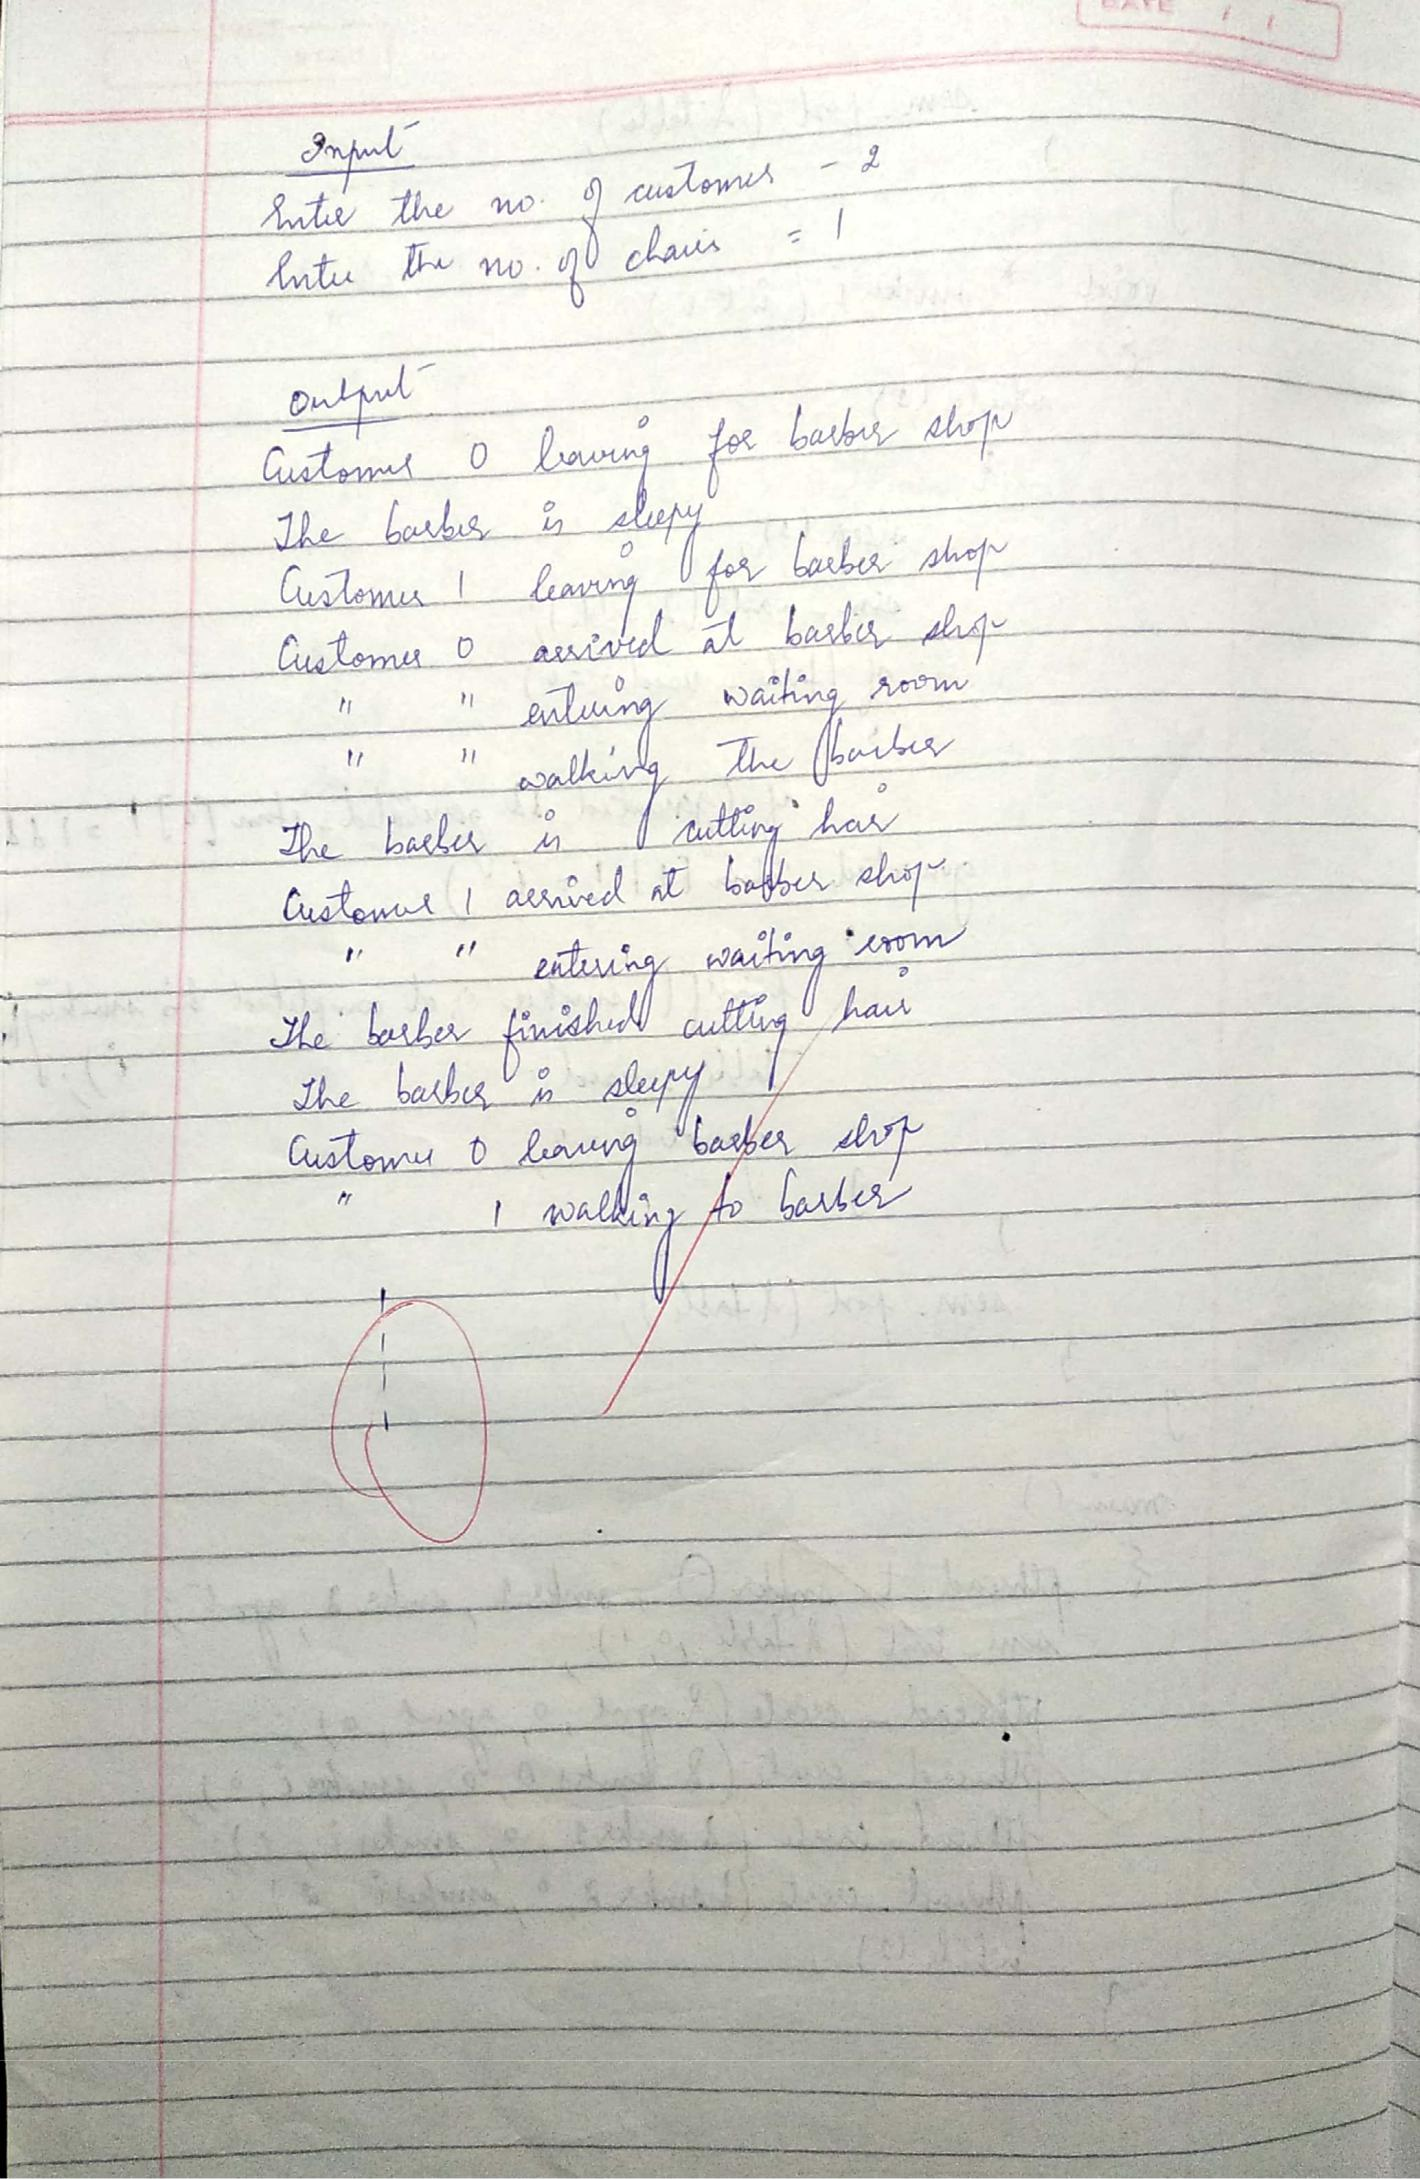 DATE / /
Input
Enter the no. of customer - 2
Enter the no. of chairs = 1
Output
Customer 0 leaving for barber shop
The barber is sleepy
Customer 1 leaving for barber shop
Customer 0 arrived at barber shop
" " entering waiting room
" " walking the barber
The barber is cutting hair
Customer 1 arrived at barber shop.
" " entering waiting room
The barber finished cutting hair
The barber is sleepy
Customer 0 leaving barber shop
" 1 walking to barber